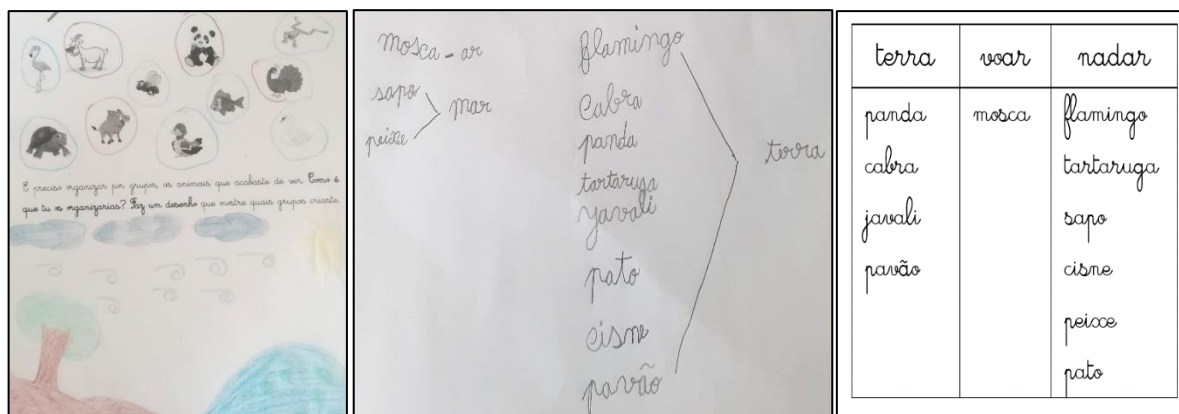 É preciso organizar por grupos, os animais que acabaste de ver. Como é
que tu os organizarias? Faz um desenho que mostre quais grupos criaste.
mosca - ar
sapo
peixe
mar
flamingo
cabra
panda
tartaruga
yavali
pato
cisne
pavão
terra
terra voar nadar
panda mosca flamingo
cabra tartaruga
javali sapo
pavão cisne
peixe
pato